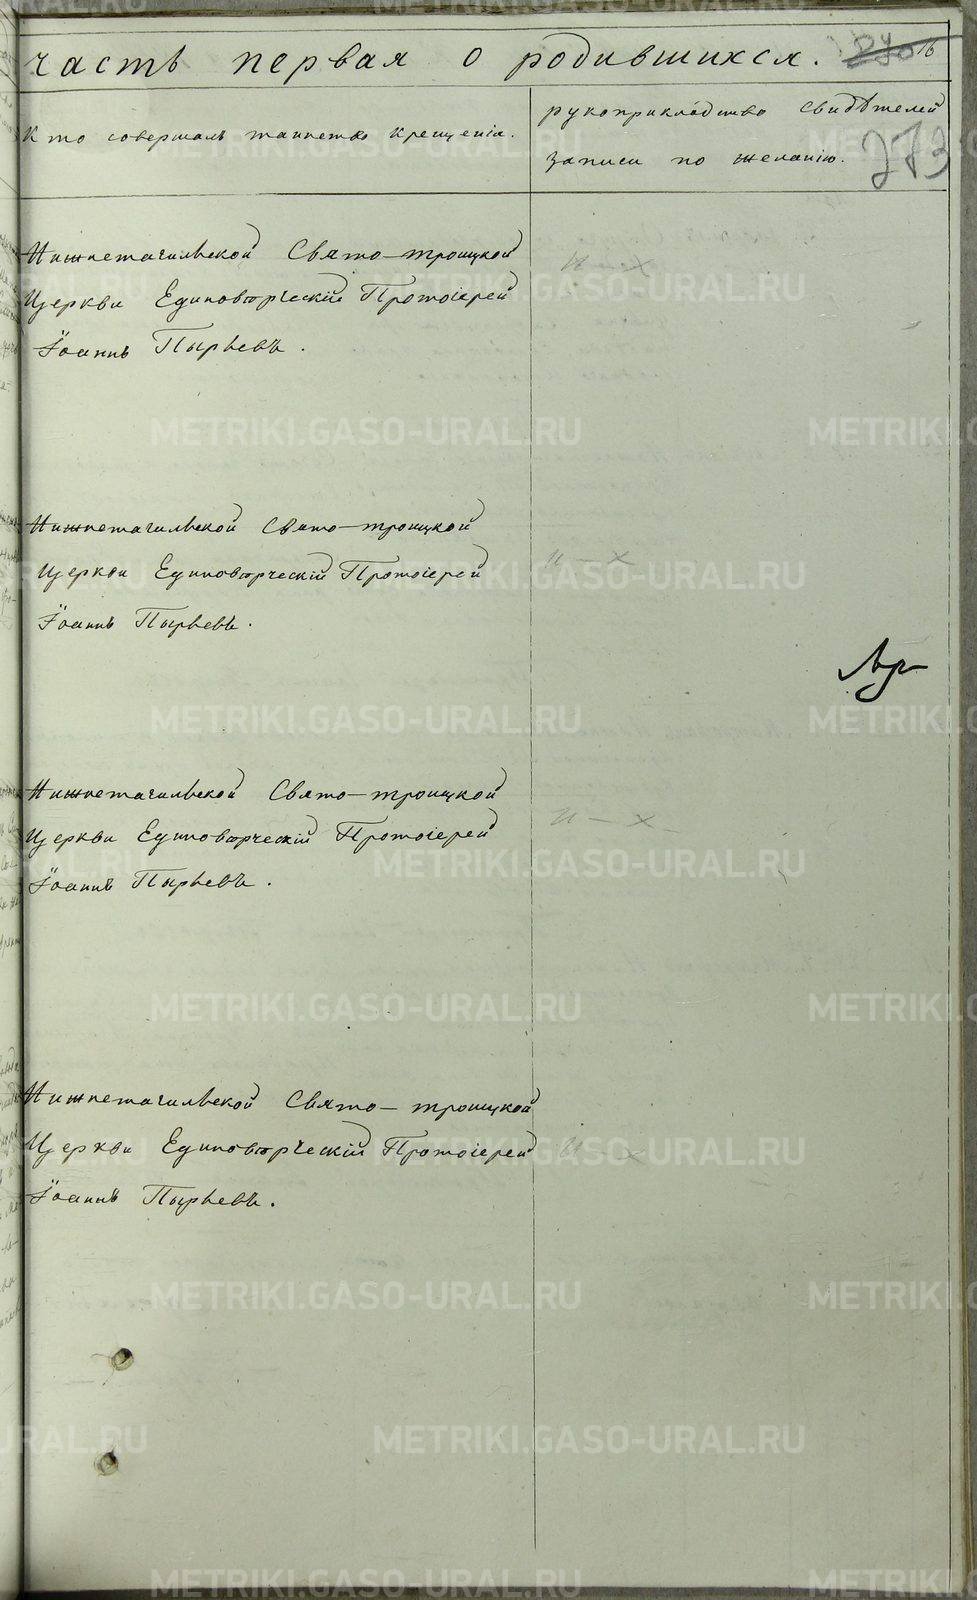 часть первая о родившихся.
16
273
Кто совершалъ таинство крещенія.
рукоприкладство свидѣтелей
записи по желанію.
Нижнетагильской Свято-троицкой
Церкви Единовѣрческій Протоіерей
Іоаннъ Пырьевъ.
и - х
Нижнетагильской Свято-троицкой
Церкви Единовѣрческій Протоіерей
Іоаннъ Пырьевъ.
и - х
Нижнетагильской Свято-троицкой
Церкви Единовѣрческій Протоіерей
Іоаннъ Пырьевъ.
и - х
Нижнетагильской Свято-троицкой
Церкви Единовѣрческій Протоіерей
Іоаннъ Пырьевъ.
и - х
METRIKI.GASO-URAL.RU